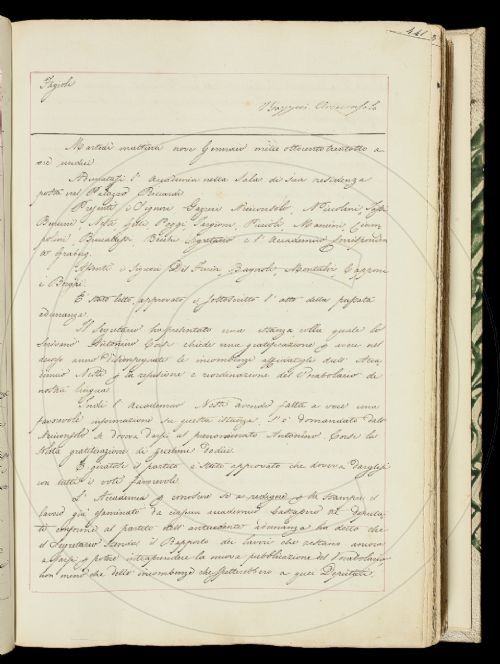 441
Fagioli
Martedì mattina nove Gennaio mille ottocentotrentotto a
ore undici
Adunatasi l'Accademia nella Sala di sua residenza
posta nel Palazzo Riccardi
Presenti i Signori Gazzeri Arciconsolo, Niccolini,
Nesti, Poggi, Targioni, Mancini, Ciam
polini Becchi Segretario e l'Accademico Corrispondente
Assenti i Signori Del Furia, Bagnoli, Montalvi, Capponi
e
È stato letto, approvato e sottoscritto l'atto della passata
adunanza.
Il Segretario ha presentato una istanza colla quale lo
Scrivano Antonino Corse chiede una gratificazione p. avere nel
decorso anno disimpegnato le incombenze affidategli dall'Acca
demico Nesti p. la refusione e riordinazione del Vocabolario di
nostra lingua.
Indi l'Accademico Nesti avendo fatta a voce una
favorevole informazione su questa istanza, s'è domandato dall'
Arciconsolo se doveva darsi al prenominato Antonino Corse la
solita gratificazione di zecchini dodici.
E girato il partito è stato approvato che doveva dargliesi
con tutti i voti favorevoli.
L'Accademia p. conoscere se a redigere e da stampare il
lavoro già esaminato da ciascun accademico Deputa
to conforme al partito dell'antecedente adunanza ha detto che
il Segretario stenda il Rapporto dei lavori che restano ancora
a farsi p. potere intraprendere la nuova pubblicazione del Vocabolario
non meno che delle incombenze che spetterebbero a quei Deputati